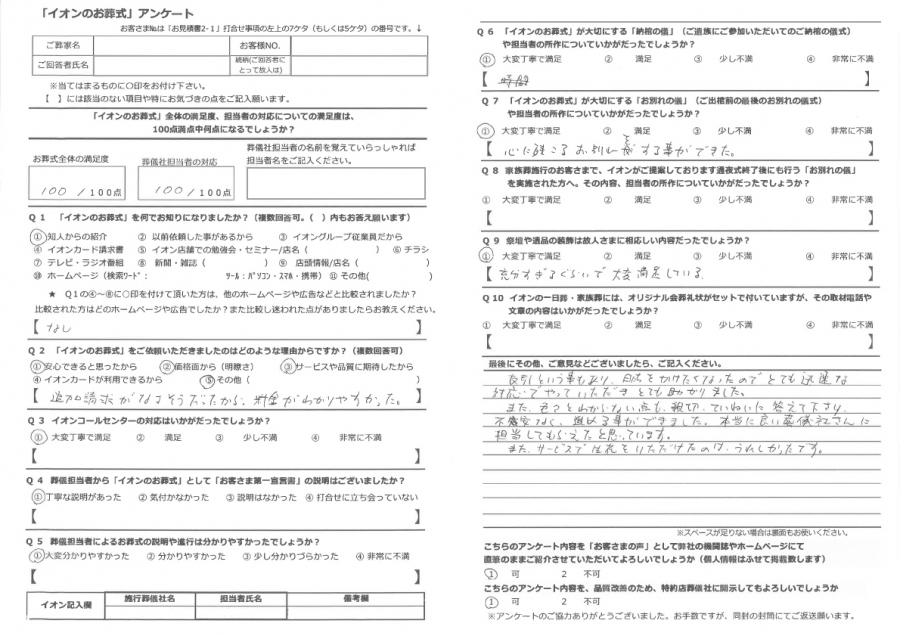 「イオンのお葬式」アンケート
お客さま№は「お見積書2-1」打合せ事項の左上の7ケタ（もしくは5ケタ）の番号です。↓
ご葬家名 お客様NO.
ご回答者氏名 続柄(ご回答者にとって故人は)
※当てはまるものに○印をお付け下さい。
【　】には該当のない項目や特にお気づきの点をご記入願います。
「イオンのお葬式」全体の満足度、担当者の対応についての満足度は、
100点満点中何点になるでしょうか？
お葬式全体の満足度 葬儀社担当者の対応 葬儀社担当者の名前を覚えていらっしゃれば
担当者名をご記入ください。
100 / 100点 100 / 100点
Q1 「イオンのお葬式」を何でお知りになりましたか？（複数回答可。（　）内もお答え願います）
① 知人からの紹介 ② 以前依頼した事があるから ③ イオングループ従業員だから
④ イオンカード請求書 ⑤ イオン店舗での勉強会・セミナー/店名（　） ⑥ チラシ
⑦ テレビ・ラジオ番組 ⑧ 新聞・雑誌（　） ⑨ 店頭情報/店名（　）
⑩ ホームページ（検索ﾜｰﾄﾞ：　ﾂｰﾙ：ﾊﾟｿｺﾝ・ｽﾏﾎ・携帯） ⑪ その他(　)
★ Q1の④～⑧に○印を付けて頂いた方は、他のホームページや広告などと比較されましたか？
比較された方はどのホームページや広告でしたか？また比較し迷われた点がありましたらお教えください。
【 なし 】
Q2 「イオンのお葬式」をご依頼いただきましたのはどのような理由からですか？（複数回答可）
① 安心できると思ったから ② 価格面から（明瞭さ） ③ サービスや品質に期待したから
④ イオンカードが利用できるから ⑤ その他（　）
【 追加請求がなさそうだったから、料金がわかりやすかった。 】
Q3 イオンコールセンターの対応はいかがだったでしょうか？
① 大変丁寧で満足 ② 満足 ③ 少し不満 ④ 非常に不満
【　】
Q4 葬儀担当者から「イオンのお葬式」として「お客さま第一宣言書」の説明はございましたか？
① 丁寧な説明があった ② 気付かなかった ③ 説明はなかった ④ 打合せに立ち会っていない
【　】
Q5 葬儀担当者によるお葬式の説明や進行は分かりやすかったでしょうか？
① 大変分かりやすかった ② 分かりやすかった ③ 少し分かりづらかった ④ 非常に不満
【　】
イオン記入欄 施行葬儀社名 担当者氏名 備考欄
Q6 「イオンのお葬式」が大切にする「納棺の儀」（ご遺族にご参加いただいてのご納棺の儀式）
や担当者の所作についていかがだったでしょうか？
① 大変丁寧で満足 ② 満足 ③ 少し不満 ④ 非常に不満
【　】
Q7 「イオンのお葬式」が大切にする「お別れの儀」（ご出棺前の最後のお別れの儀式）
や担当者の所作についていかがだったでしょうか？
① 大変丁寧で満足 ② 満足 ③ 少し不満 ④ 非常に不満
【 心に残こるお別れをする事ができた。 】
Q8 家族葬施行のお客さまで、イオンがご提案しております通夜式終了後にも行う「お別れの儀」
を実施された方へ。その内容、担当者の所作についていかがだったでしょうか？
① 大変丁寧で満足 ② 満足 ③ 少し不満 ④ 非常に不満
【　】
Q9 祭壇や遺品の装飾は故人さまに相応しい内容だったでしょうか？
① 大変丁寧で満足 ② 満足 ③ 少し不満 ④ 非常に不満
【 充分すぎるぐらいで大変満足している。 】
Q10 イオンの一日葬・家族葬には、オリジナル会葬礼状がセットで付いていますが、その取材電話や
文章の内容はいかがだったでしょうか？
① 大変丁寧で満足 ② 満足 ③ 少し不満 ④ 非常に不満
【　】
最後にその他、ご意見などございましたら、ご記入ください。
という事もあり、日にちをかけたくなかったのでとても迅速な
対応でやっていただきとても助かりました。
また、色々とわからない点も、親切、ていねいに答えて下さり、
不安なく、進める事ができました。本当に良い葬儀社さんに
担当してもらえたと思っています。
また、サービスで生花をいただけたのは、うれしかったです。
※スペースが足りない場合は裏面もお使いください。
こちらのアンケート内容を「お客さまの声」として弊社の機関誌やホームページにて
直筆のままご紹介させていただいてよろしいでしょうか（個人情報はふせて掲載致します）
1 可 2 不可
こちらのアンケート内容を、品質改善のため、特約店葬儀社に開示してもよろしいでしょうか
1 可 2 不可
※アンケートのご協力ありがとうございました。お手数ですが、同封の封筒にてご返送願います。